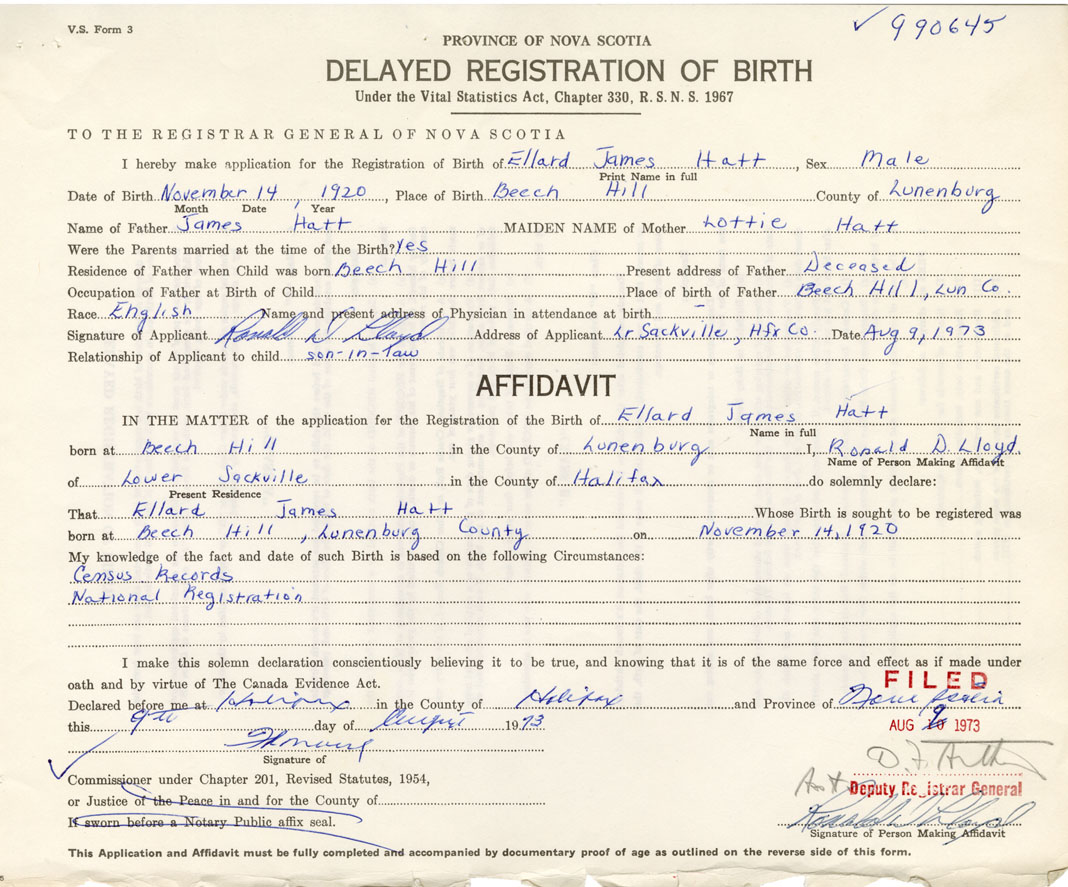 V.S. Form 3
✓ 990645
PROVINCE OF NOVA SCOTIA
DELAYED REGISTRATION OF BIRTH
Under the Vital Statistics Act, Chapter 330, R.S.N.S. 1967
TO THE REGISTRAR GENERAL OF NOVA SCOTIA
I hereby make application for the Registration of Birth of Ellard James Hatt, Sex Male
Print Name in full
Date of Birth November 14, 1920, Place of Birth Beech Hill County of Lunenburg
Month Date Year
Name of Father James Hatt MAIDEN NAME of Mother Lottie Hatt
Were the Parents married at the time of the Birth? Yes
Residence of Father when Child was born Beech Hill Present address of Father Deceased
Occupation of Father at Birth of Child Place of birth of Father Beech Hill, Lun Co.
Race English Name and present address of Physician in attendance at birth –
Signature of Applicant Ronald D Lloyd Address of Applicant Lr Sackville, Hfx Co. Date Aug 9, 1973
Relationship of Applicant to child son-in-law
AFFIDAVIT
IN THE MATTER of the application for the Registration of the Birth of Ellard James Hatt
Name in full
born at Beech Hill in the County of Lunenburg I, Ronald D. Lloyd
Name of Person Making Affidavit
of Lower Sackville in the County of Halifax do solemnly declare:
Present Residence
That Ellard James Hatt Whose Birth is sought to be registered was
born at Beech Hill, Lunenburg County on November 14, 1920
My knowledge of the fact and date of such Birth is based on the following Circumstances:
Census Records
National Registration
I make this solemn declaration conscientiously believing it to be true, and knowing that it is of the same force and effect as if made under
oath and by virtue of The Canada Evidence Act.
FILED
Declared before me at Halifax in the County of Halifax and Province of Nova Scotia
this 9th day of August 1973
AUG 9 1973
Signature of
Commissioner under Chapter 201, Revised Statutes, 1954,
Deputy Registrar General
or Justice of the Peace in and for the County of
If sworn before a Notary Public affix seal.
Ronald D Lloyd
Signature of Person Making Affidavit
This Application and Affidavit must be fully completed and accompanied by documentary proof of age as outlined on the reverse side of this form.